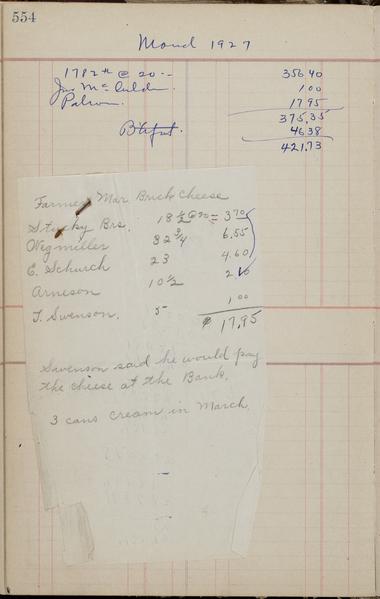 554
March 1927
1782 lb @ 20 -- 356 40
Jas Mc 1 00
Patron. 17 95
375,35
B't f'wd. 46 38
421,73
Farmer Mar Brick Cheese
Stucky Brs. 18 1/2 @ 20 = 3 70
Wegmiller 32 3/4 6.55
E. Schurch 23 4.60
Arneson 10 1/2 2 10
T. Swenson. 5 - 1 00
$ 17,95
Swenson said he would pay
the cheese at the Bank.
3 cans cream in March